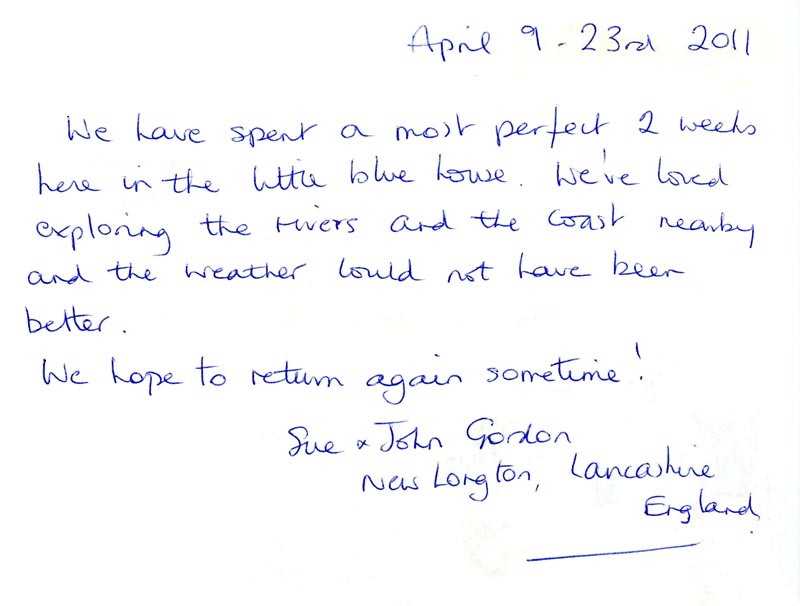 April 9 - 23rd 2011
We have spent a most perfect 2 weeks
here in the little blue house. We've loved
exploring the rivers and the coast nearby
and the weather could not have been
better.
We hope to return again sometime!
Sue & John Gordon
New Longton, Lancashire
England.